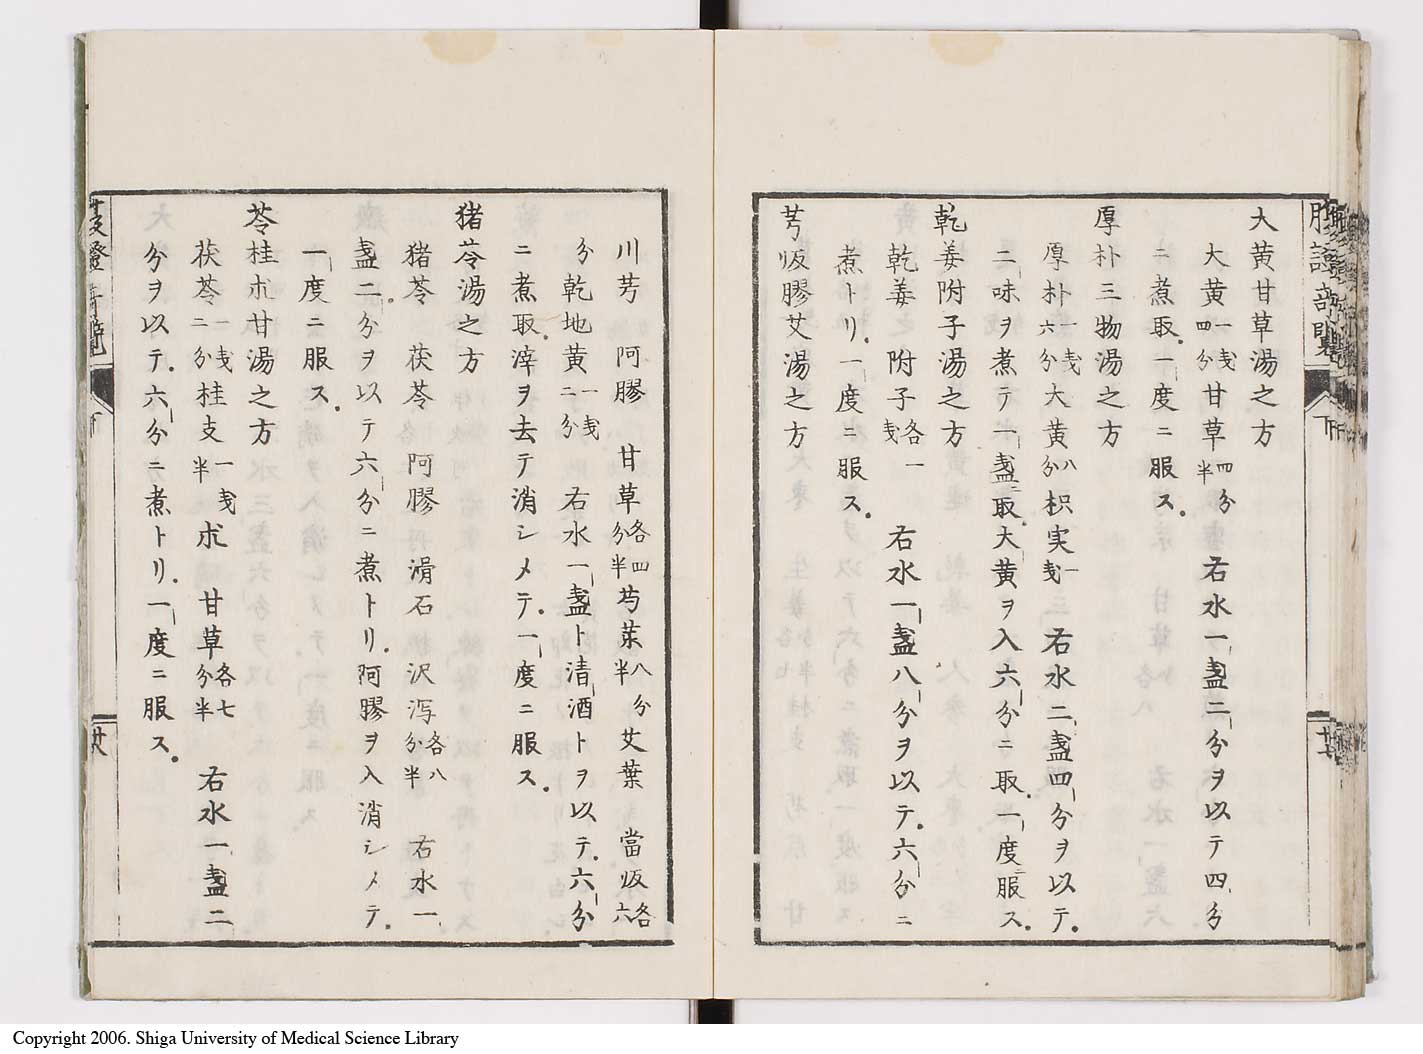 大黄甘草湯之方
大黄一戔四分甘草四分半 右水一盞二分ヲ以テ四分
ニ煮取一度ニ服ス
厚朴三物湯之方
厚朴一戔六分大黄八分枳実一戔 右水二盞四分ヲ以テ
二味ヲ煮テ一盞ニ取大黄ヲ入六分ニ取一度ニ服ス
乾姜附子湯之方
乾姜 附子各一戔 右水一盞八分ヲ以テ六分ニ
煮トリ一度ニ服ス
芎皈膠艾湯之方
川芎 阿膠 甘草各四分半芍薬八分半艾葉 當皈各六
分乾地黄一戔二分 右水一盞ト清酒一盞トヲ以テ六分
ニ煮取滓ヲ去テ消シメテ一度ニ服ス
猪苓湯之方
猪苓 茯苓 阿膠 滑石 沢瀉各八分半 右水一
盞二分ヲ以テ六分ニ煮トリ阿膠ヲ入消シメテ
一度ニ服ス
苓桂朮甘湯之方
茯苓一戔二分桂支一戔半朮 甘草各七分半 右水一盞二
分ヲ以テ六分ニ煮トリ一度ニ服ス
下
廿八
Copyright 2006. Shiga University of Medical Science Library